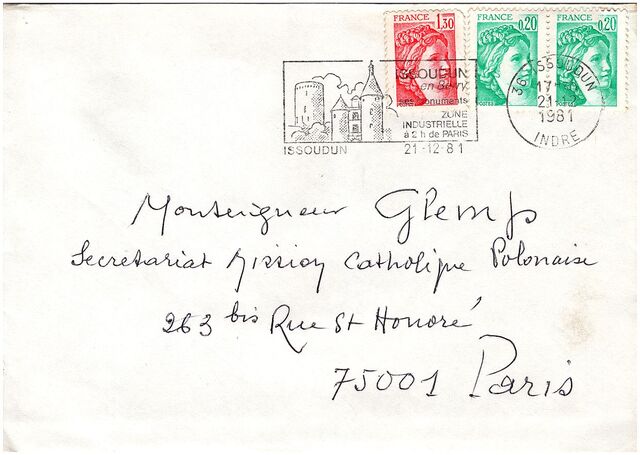 FRANCE 1,30
FRANCE 0,20
FRANCE 0,20
POSTES
POSTES
ISSOUDUN
en Berry
ses monuments
ZONE
INDUSTRIELLE
à 2 h de PARIS
ISSOUDUN 21-12-81
36 ISSOUDUN
17
21
1981
INDRE
Monseigneur Glemp
Secretariat Mission Catholique Polonaise
263 bis Rue St Honoré
75001 Paris